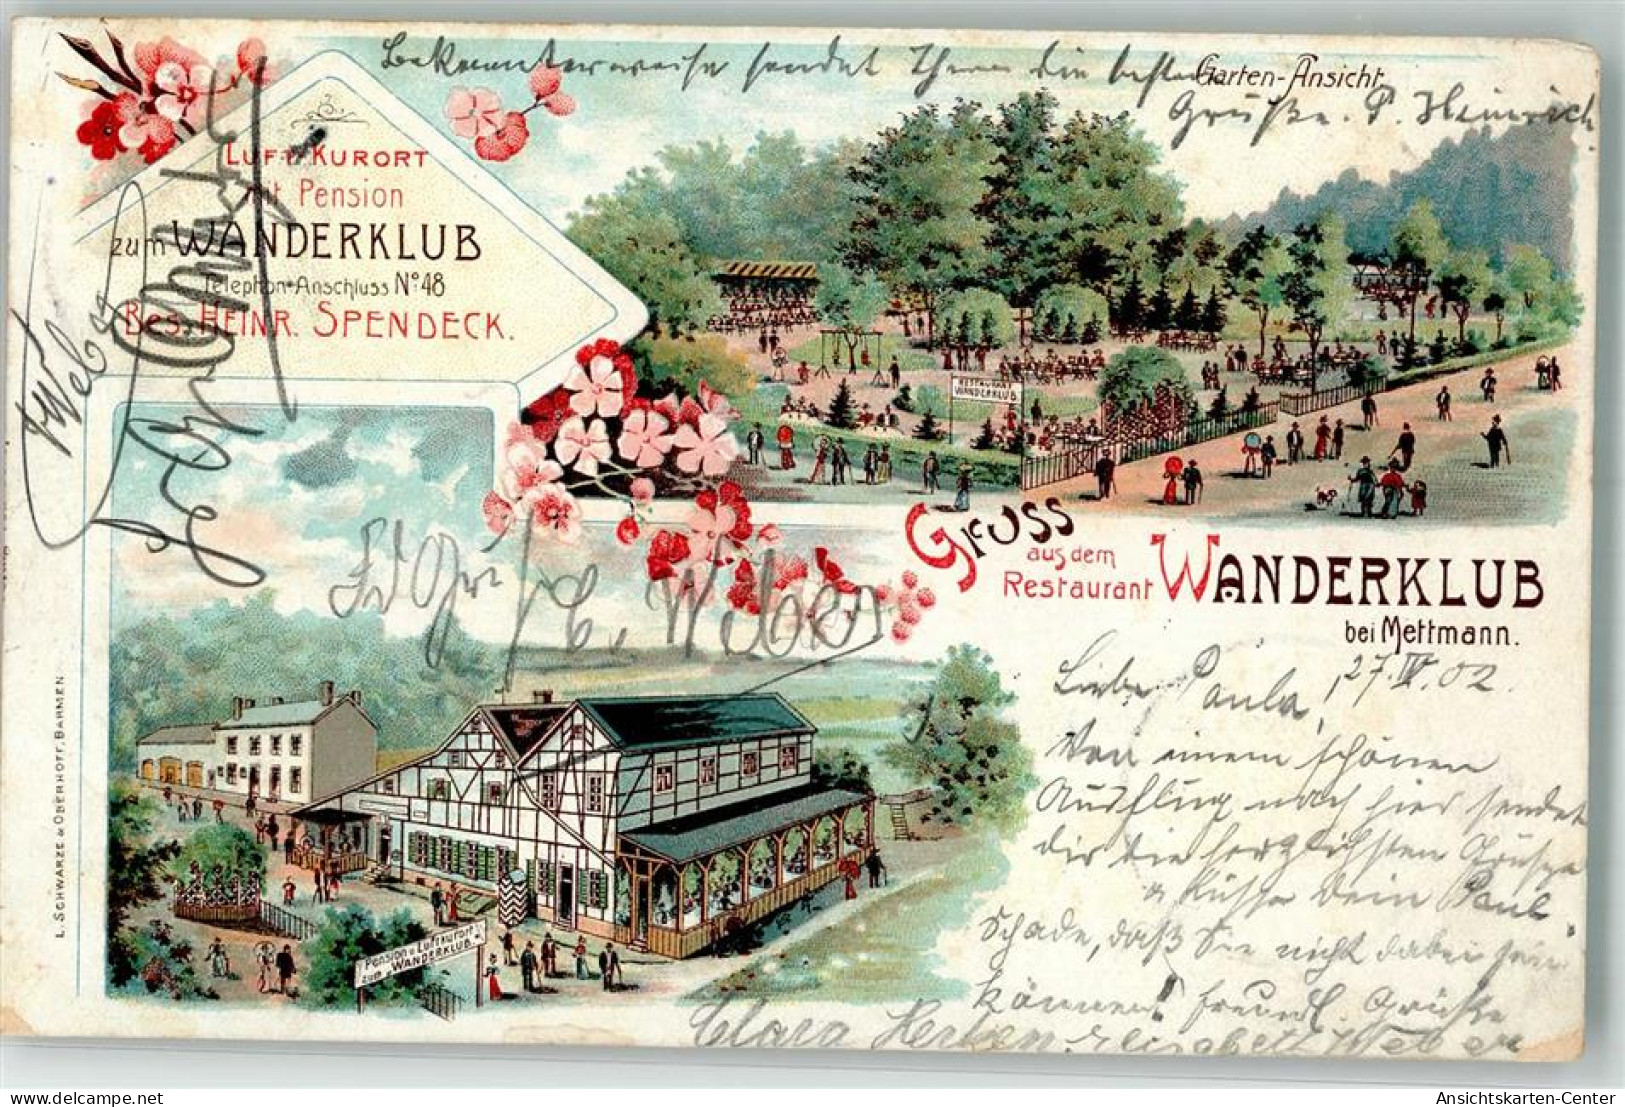 Bekannterweise sendet Ihnen die besten
Grüße. P. Heinrich
Garten-Ansicht
LUFT-KURORT
mit Pension
zum WANDERKLUB
Telephon-Anschluss No 48
Bes. HEINR. SPENDECK.
RESTAURANT
WANDERKLUB
Gruss
aus dem
Restaurant WANDERKLUB
bei Mettmann.
27.IV.02.
Liebe Paula,
Von einem schönen
Ausflug nach hier sendet
dir die herzlichsten Grüsse
u Küsse Dein Paul.
Schade, daß Sie nicht dabei sein
können! freundl. Grüße
Clara Elisabeth Weber
Gruß C. Weber
W. Weber
PENSION u. LUFTKURORT
zum „WANDERKLUB"
L. SCHWARZE & OBERHOFF, BARMEN
Ansichtskarten-Center